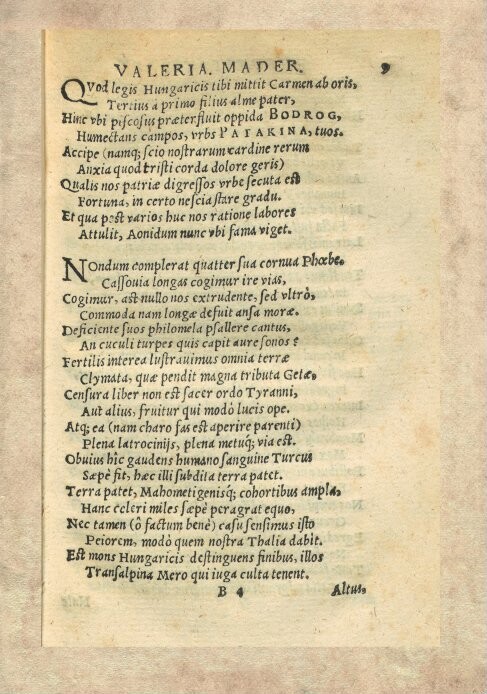 VALERIA. MADER. 9
QVod legis Hungaricis tibi mittit Carmen ab oris,
Tertius à primo filius alme pater,
Hinc vbi piscosus præterfluit oppida BODROG,
Humectans campos, vrbs PATAKINA, tuos.
Accipe (namq; scio nostrarum cardine rerum
Anxia quod tristi corda dolore geris)
Qualis nos patriæ digressos vrbe secuta est
Fortuna, in certo nescia stare gradu.
Et qua post varios huc nos ratione labores
Attulit, Aonidum nunc vbi fama viget.
NOndum complerat quatter sua cornua Phœbe.
Cassouia longas cogimur ire vias,
Cogimur, ast nullo nos extrudente, sed vltrò,
Commoda nam longæ defuit ansa moræ.
Deficiente suos philomela psallere cantus,
An cuculi turpes quis capit aure sonos?
Fertilis interea lustrauimus omnia terræ
Clymata, quæ pendit magna tributa Getæ,
Censura liber non est sacer ordo Tyranni,
Aut alius, fruitur qui modò lucis ope.
Atq; ea (nam charo fas est aperire parenti)
Plena latrocinijs, plena metuq; via est.
Obuius hîc gaudens humano sanguine Turcus
Sæpè fit, hæc illi subdita terra patet.
Terra patet, Mahometigenisq; cohortibus ampla,
Hanc celeri miles sæpè peragrat equo,
Nec tamen (ô factum benè) casu sensimus isto
Peiorem, modò quem nostra Thalia dabit.
Est mons Hungaricis destinguens finibus, illos
Transalpina Mero qui iuga culta tenent.
B 4 Altus,